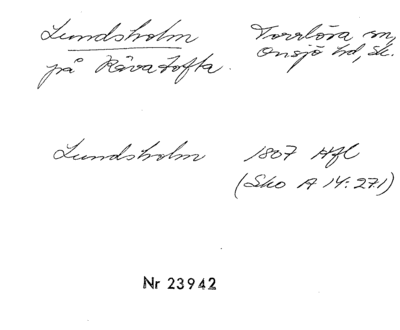 Lundsholm Torrlösa sn,
på Rövatofta. Onsjö hd, Sk.
Lundsholm 1807 Hfl
(Sko A 14:271)
Nr 23942